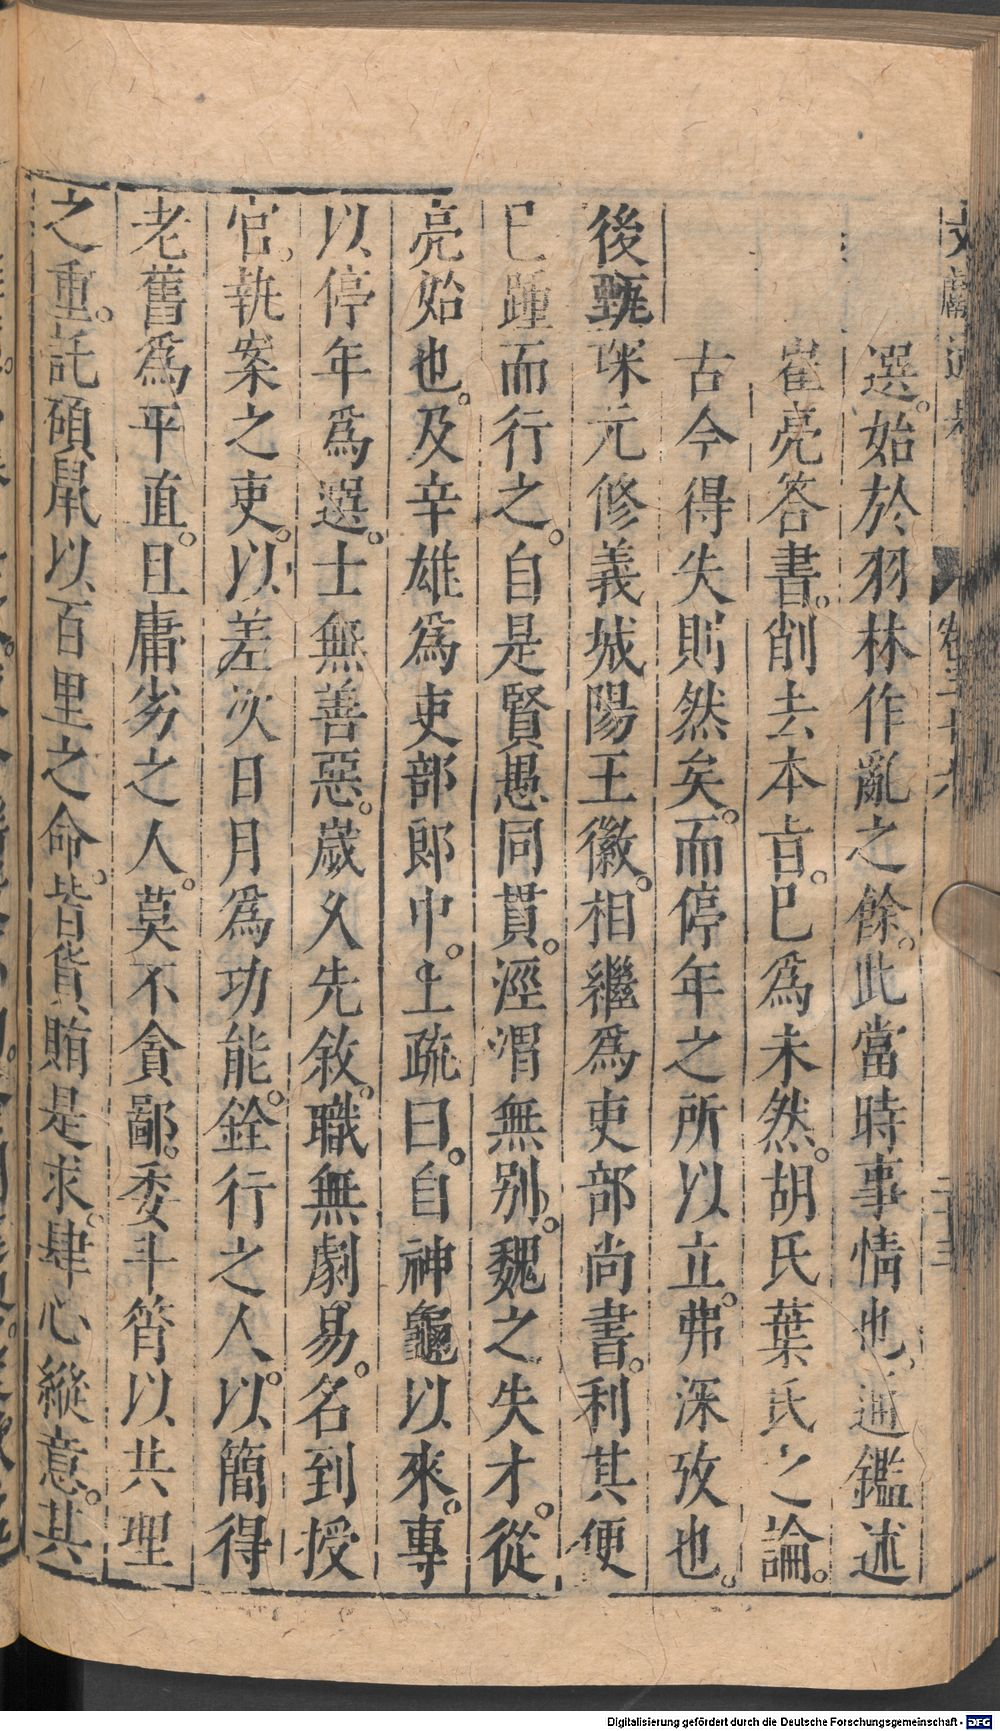 文獻通考 卷三十六 二十三
選。始於羽林作亂之餘。此當時事情也。通鑑述
崔亮答書。削去本㫖。巳爲未然。胡氏葉氏之論。
古今得失則然矣。而停年之所以立。弗深攷也。
後甄琛元修義城陽王徽。相繼爲吏部尚書。利其便
巳踵而行之。自是賢愚同貫。涇渭無别。魏之失才。從
亮始也。及辛雄爲吏部郎中。上疏曰。自神龜以來。專
以停年爲選。士無善惡。歲久先敘。職無劇易。名到授
官。執案之吏。以差次日月爲功能。銓行之人。以簡得
老舊爲平直。且庸劣之人。莫不貪鄙。委斗筲以共理
之重。託碩鼠以百里之命。皆貨賄是求。肆心縱意。其
Digitalisierung gefördert durch die Deutsche Forschungsgemeinschaft - DFG